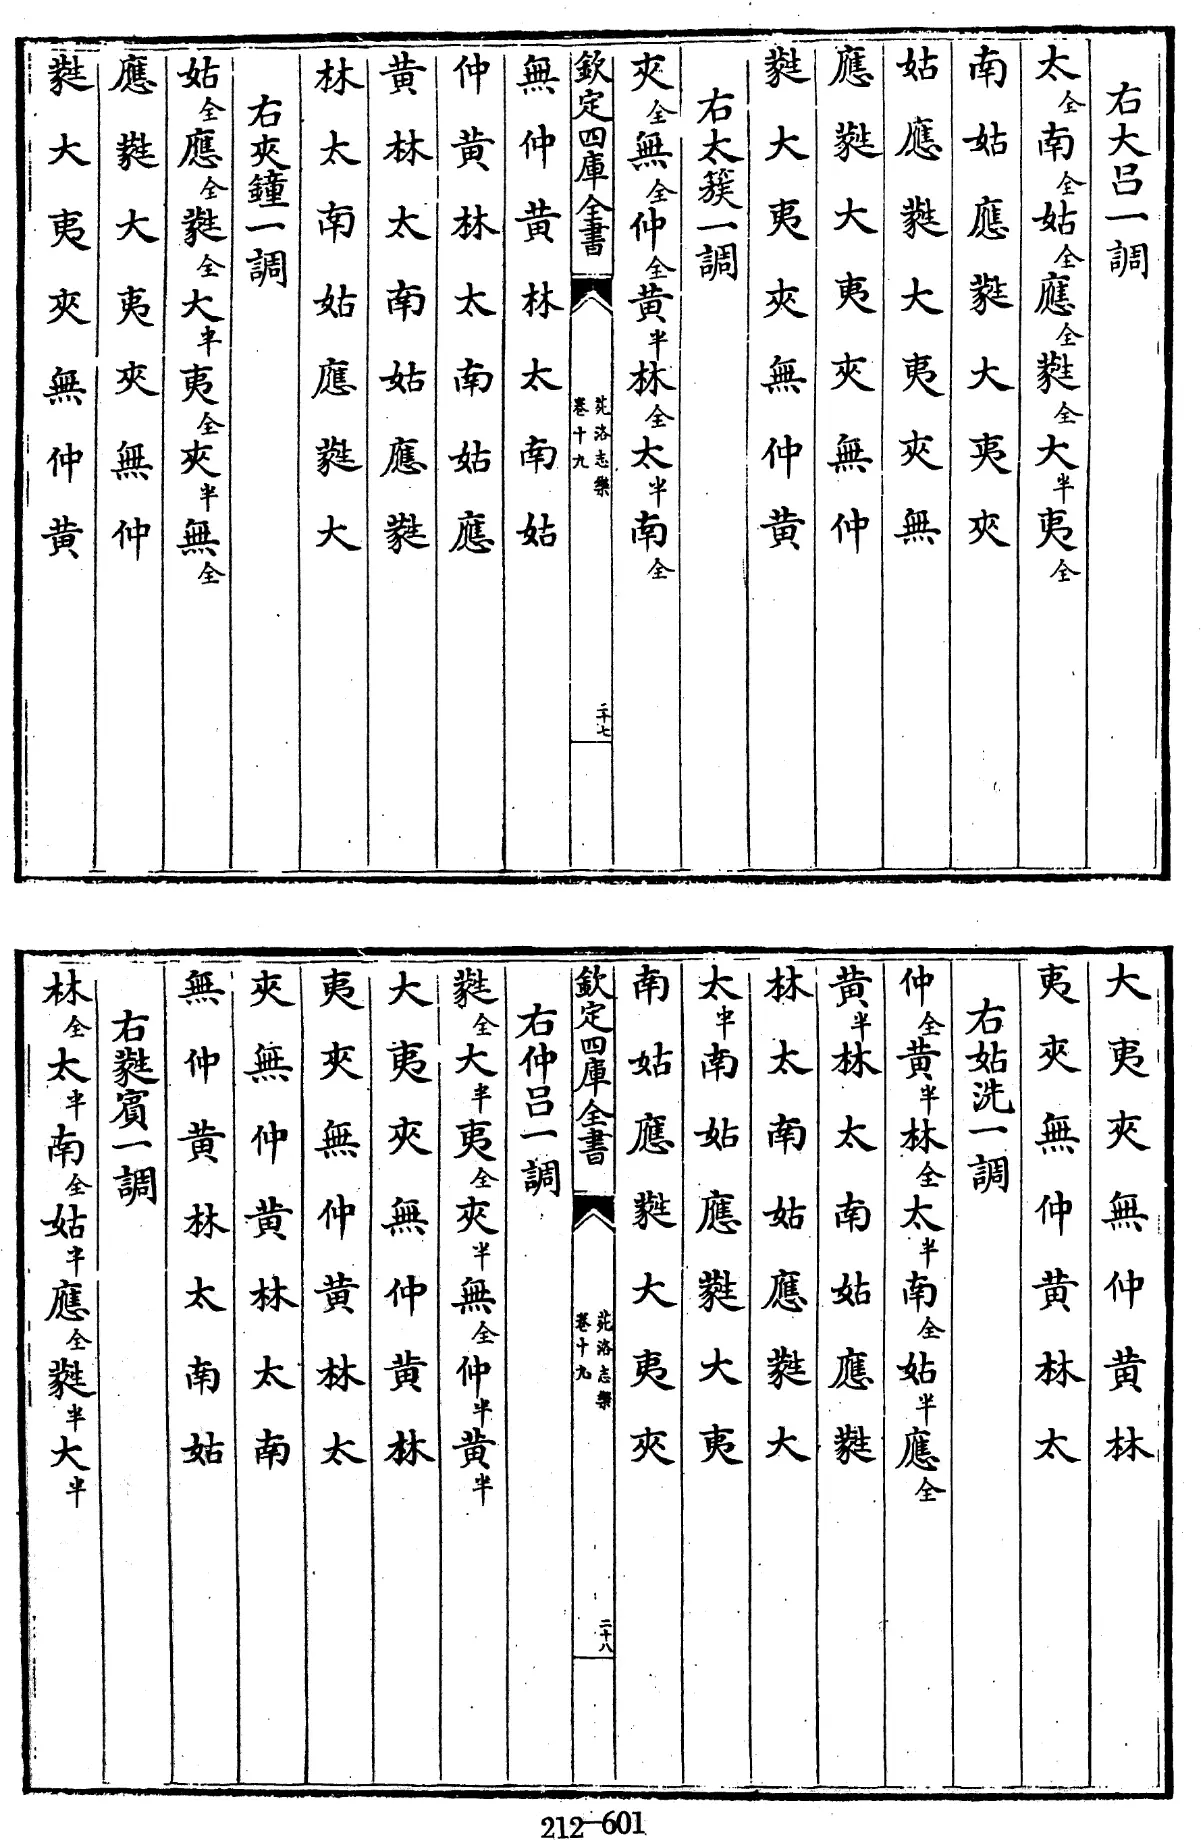 右大呂一調
太全南全姑全應全蕤全大半夷全
南姑應蕤大夷夾
姑應蕤大夷夾無
應蕤大夷夾無仲
蕤大夷夾無仲黄
右太簇一調
夾全無全仲全黄半林全太半南全
欽定四庫全書
苑洛志樂
卷十九
二十七
無仲黄林太南姑
仲黄林太南姑應
黄林太南姑應蕤
林太南姑應蕤大
右夾鐘一調
姑全應全蕤全大半夷全夾半無全
應蕤大夷夾無仲
蕤大夷夾無仲黄
大夷夾無仲黄林
夷夾無仲黄林太
右姑洗一調
仲全黄半林全太半南全姑半應全
黄半林太南姑應蕤
林太南姑應蕤大
太半南姑應蕤大夷
南姑應蕤大夷夾
欽定四庫全書
苑洛志樂
卷十九
二十八
右仲呂一調
蕤全大半夷全夾半無全仲半黄半
大夷夾無仲黄林
夷夾無仲黄林太
夾無仲黄林太南
無仲黄林太南姑
右蕤賓一調
林全太半南全姑半應全蕤半大半
212-601